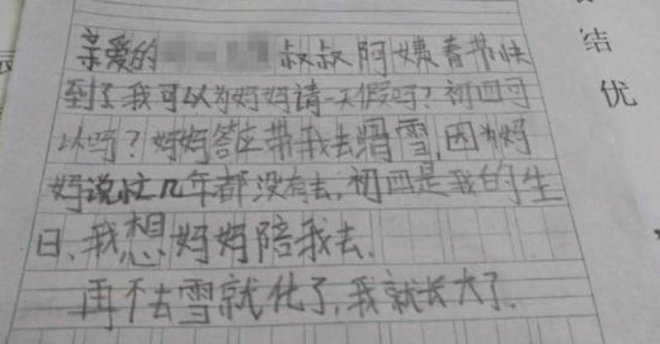 亲爱的 叔叔阿姨春节快
到了我可以为妈妈请一天假吗?初四可
以吗?妈妈答应带我去滑雪,因为妈
妈说忙几年都没有去,初四是我的生
日、我想妈妈陪我去.
再不去雪就化了,我就长大了.
结
优